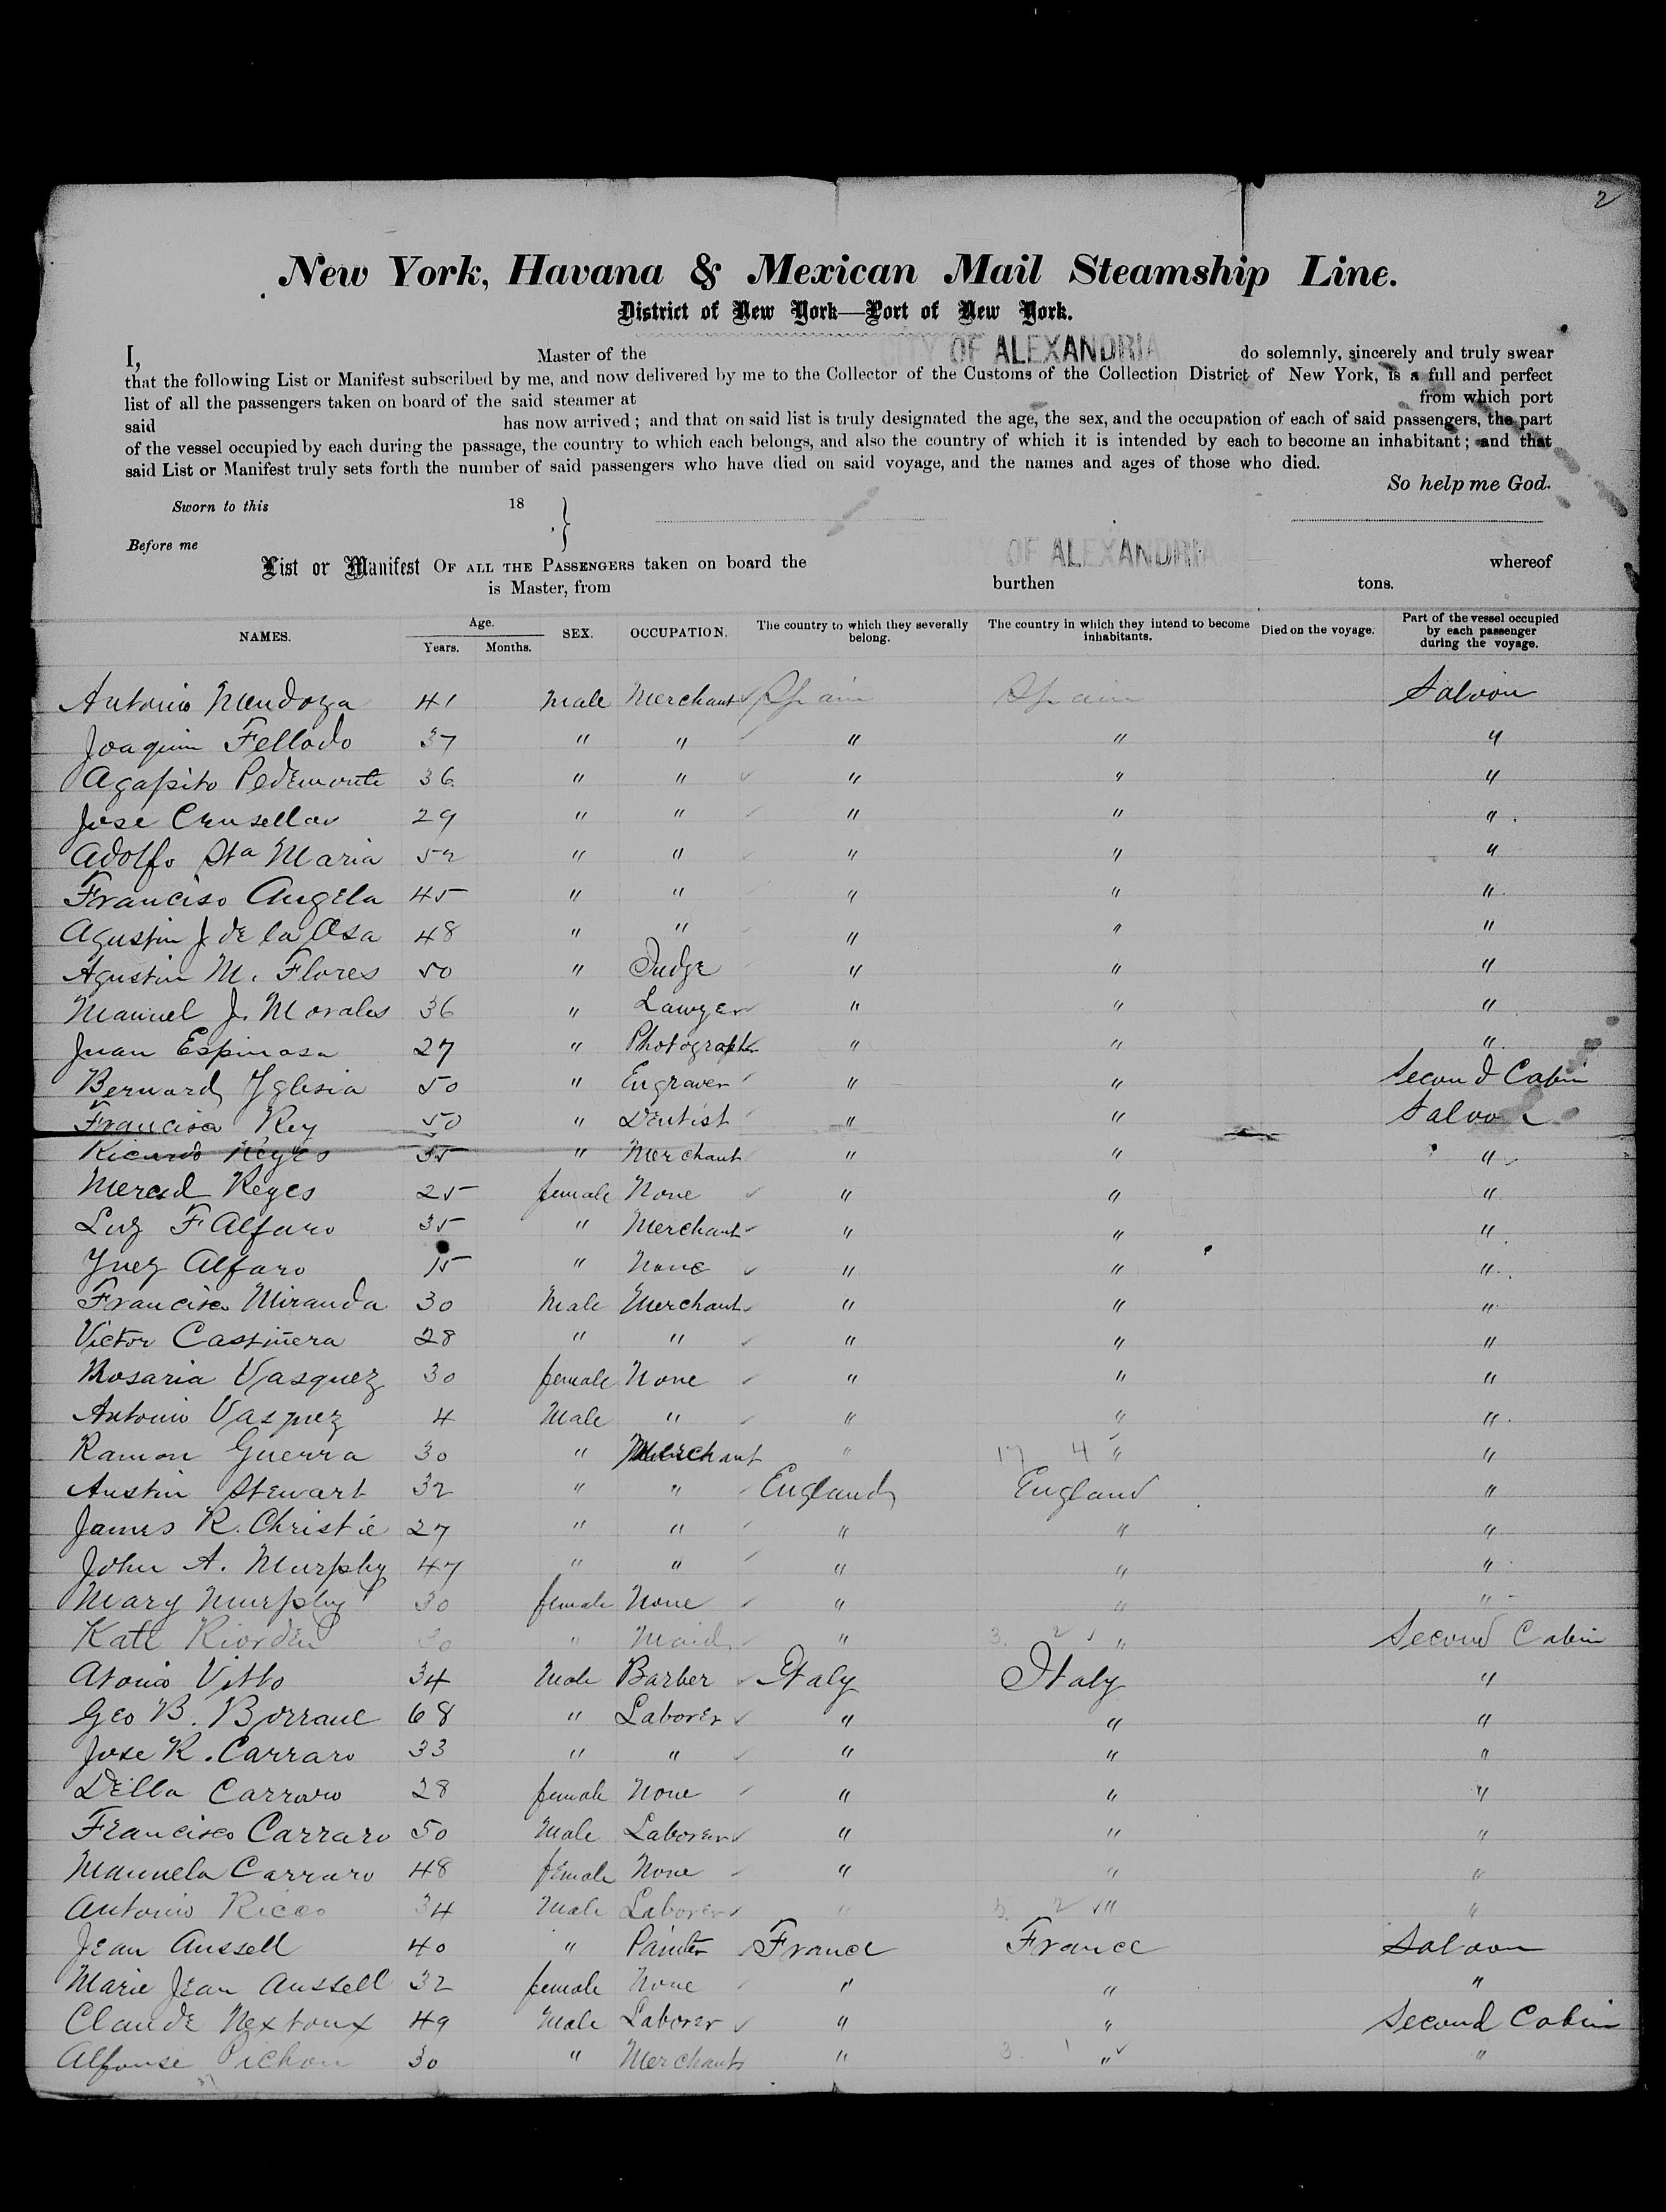 2
New York, Havana & Mexican Mail Steamship Line.
District of New York—Port of New York.
I, Master of the CITY OF ALEXANDRIA do solemnly, sincerely and truly swear
that the following List or Manifest subscribed by me, and now delivered by me to the Collector of the Customs of the Collection District of New York, is a full and perfect
list of all the passengers taken on board of the said steamer at from which port
said has now arrived; and that on said list is truly designated the age, the sex, and the occupation of each of said passengers, the part
of the vessel occupied by each during the passage, the country to which each belongs, and also the country of which it is intended by each to become an inhabitant; and that
said List or Manifest truly sets forth the number of said passengers who have died on said voyage, and the names and ages of those who died.
So help me God.
Sworn to this 18
Before me
List or Manifest OF ALL THE PASSENGERS taken on board the CITY OF ALEXANDRIA whereof
is Master, from burthen tons.
NAMES. Age. Years. Months. SEX. OCCUPATION. The country to which they severally belong. The country in which they intend to become inhabitants. Died on the voyage. Part of the vessel occupied by each passenger during the voyage.
Antonio Mendoza 41 Male Merchant Spain Spain Saloon
Joaquin Fellado 37 " " " " "
Agapito Pedemonte 36 " " " " "
Jose Crusellas 29 " " " " "
Adolfo Sta Maria 52 " " " " "
Franciso Angela 45 " " " " "
Agustin J. de la Osa 48 " " " " "
Agustin M. Flores 50 " Judge " " "
Manuel J. Morales 36 " Lawyer " " "
Juan Espinosa 27 " Photographer " " "
Bernard Yglesia 50 " Engraver " " Second Cabin
Francisco Rey 50 " Dentist " " Saloon
Ricardo Reyes 35 " Merchant " " "
Merced Reyes 25 female None " " "
Luz F Alfaro 35 " Merchant " " "
Ynez Alfaro 15 " None " " "
Francisco Miranda 30 Male Merchant " " "
Victor Castiñera 28 " " " " "
Rosaria Vasquez 30 female None " " "
Antonio Vasquez 4 Male " " " "
Ramon Guerra 30 " Merchant " 17 4 " "
Austin Stewart 32 " " England England "
James R. Christie 27 " " " " "
John A. Murphy 47 " " " " "
Mary Murphy 30 female None " " "
Kate Riorden 30 " Maid " 3. 2 " Second Cabin
Atonio Vitto 34 Male Barber Italy Italy "
Geo B. Borrane 68 " Laborer " " "
Jose R. Carraro 33 " " " " "
Della Carraro 28 female None " " "
Francisco Carraro 50 Male Laborer " " "
Mannela Carraro 48 female None " " "
Antonio Ricco 34 Male Laborer " 5. 2 " "
Jean Aussell 40 " Painter France France Saloon
Marie Jean Aussell 32 female None " " "
Claude Nextoux 49 Male Laborer " " Second Cabin
Alfonse Pichon 30 " Merchant " 3. 1 " "